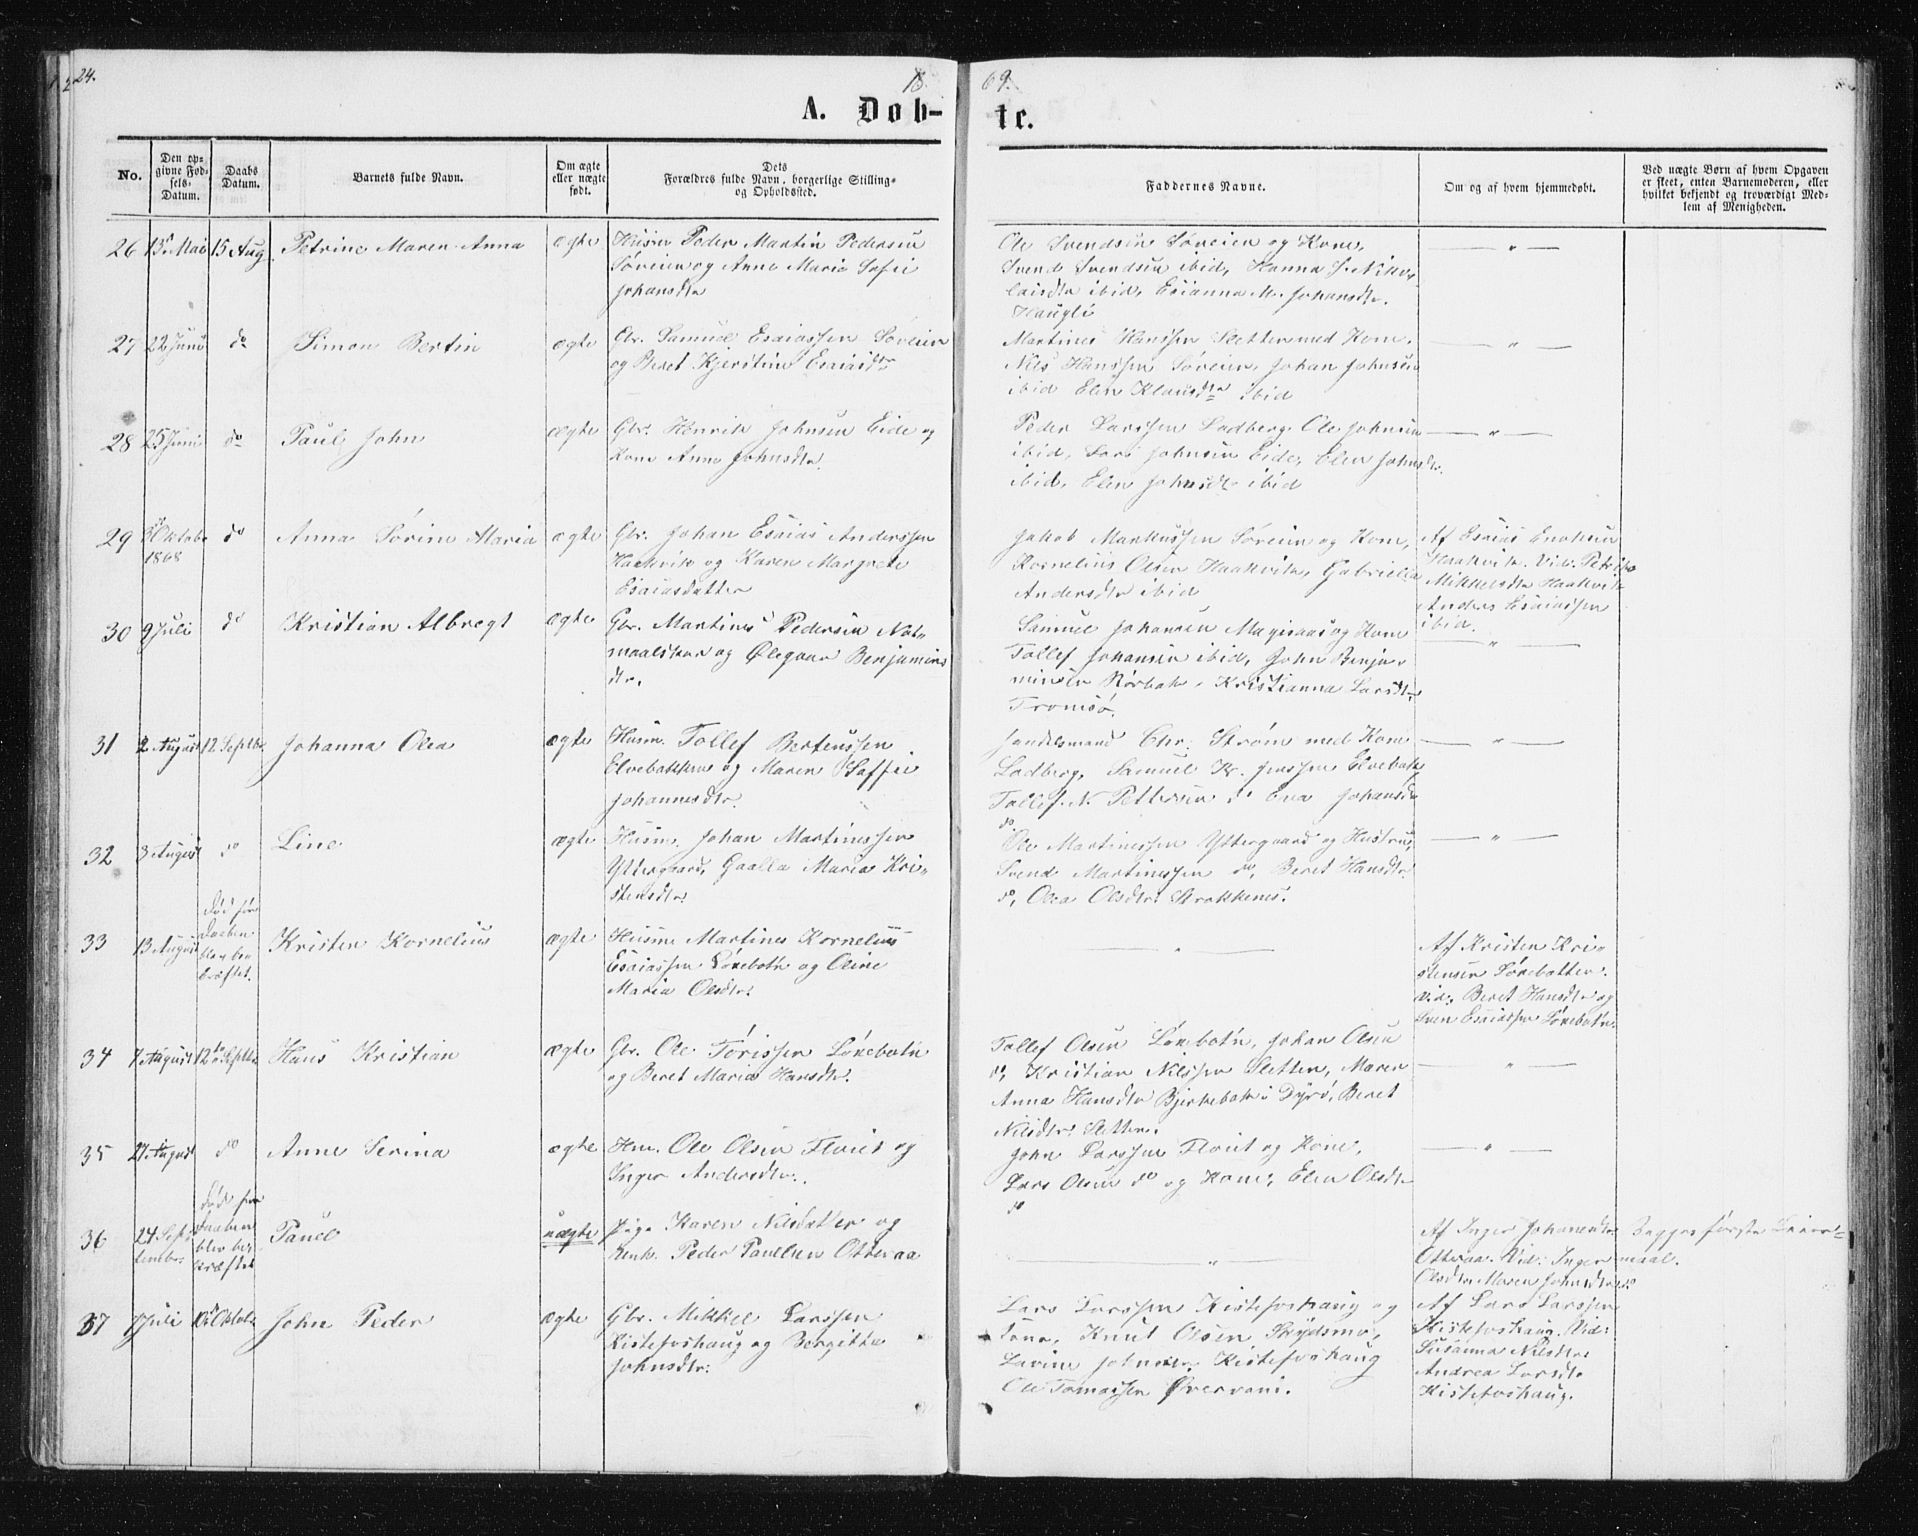 24.
18
69.
A. Døb-
te.
No.
Den op-
givne Fød-
sels-
Datum.
Daabs
Datum.
Barnets fulde Navn.
Om ægte
eller uægte
født.
Dets
Forældres fulde Navn, borgerlige Stilling
og Opholdssted.
Faddernes Navne.
Om og af hvem hjemmedøbt.
Ved uægte Børn af hvem Opgaven
er skeet, enten Barnemoderen, eller
hvilket bekjendt og troværdigt Med-
lem af Menigheden.
26 13 Mai 15 Aug Petrine Maren Anna ægte Husm Peder Martin Pedersen
Søreien og Anne Marie Sofie
Johansdtr
Ole Svendsen Søreien og Kone,
Svend Svendsen ibid, Hanna S. Niko-
laisdtr ibid, Esianna M. Johansdtr.
Haugli
27 22 Juni do Simon Bertin ægte Gbr. Samuel Esaiassen Søreien
og Beret Kjerstine Esaiasdtr
Martines Hanssen Sletten med Kone.
Nils Hanssen Søreien, Johan Johnsen
ibid Elen Klausdtr ibid
28 25 Juni do Paul John ægte Gbr. Henrik Johnsen Eide og
Kone Anne Johnsdtr.
Peder Larssen Ladberg, Ole Johnsen
ibid, Lars Johnsen Eide, Elen Johnsdtr.
ibid, Elen Johnsdtr ibid
29 Oktobr 1868 do Anna Sørine Maria ægte Gbr. Johan Esaias Anderssen
Haakvik og Karen Margrete
Esaiasdatter
Jakob Markussen Søreien og Kone,
Kornelius Olsen Haakvik, Gabriella
Andersdtr ibid
Af Esaias Enoksen
Haakvik. Vid: Petrike
Mikkelsdtr Haakvik
Anders Esaiassen
ibid.
30 9 Juli do Kristian Albregt ægte Gbr. Martines Pedersen Not-
maalskar og Ølegaar Benjamins
dtr.
Samuel Johansen og Kone
Tollef Johansen ibid, John Benja-
minsen Rørbak, Kristianna Larsdtr
Tromsø.
31 2 August 12 Septbr Johanna Olea ægte Husm. Tollef Berteussen
Elvebakken og Maren Soffie
Johannesdtr.
Handelsmand Chr. Strøm med Kone
Ladberg, Samuel Kr. Jenssen Elvebak,
Tollef N. Pettersen do Eva Johansdtr
do
32 3 August do Line ægte Husm. Johan Martinessen
Yttergaard, Gaalla Maria Kri-
stensdtr.
Ole Martinessen Yttergaard og Hustru,
Svend Martinessen do, Beret Hansdtr.
do, Olea Olsdtr. Strokkenes.
33 13 August død før
Daaben
blev be-
kræftet. Kristen Kornelius ægte Husm. Martines Kornelius
Esaiassen Løkebotn og Oline
Maria Olsdtr.
Af Kristen Kri-
stensen Løkebotten.
Vid: Beret Hansdtr og
Sven Esaiassen Løkebotn.
34 7 August 12te Septbr Hans Kristian ægte Gbr. Ole Tørissen Løkebotn
og Beret Maria Hansdtr.
Tollef Olsen Løkebotn, Johan Olsen
do, Kristian Nilssen Sletten, Maren
Anna Hansdtr Bjerkebak i Dyrø, Beret
Nilsdtr. Sletten.
35 27 August do Anne Serina ægte Hm. Ole Olsen Floret og
Inger Andersdtr.
John Larssen Floret og Kone,
Lars Olsen do og Kone, Elen Olsdtr
do
36 24 Sep-
tember død før
Daaben
blev be-
kræftet Pauel uægte Pige Karen Nilsdatter og
Peder Paulsen Otteraa
Af Inger Johansdtr
Otteraa. Vid: Inger
Olsdtr Maren Johnsdtr do
Begges første Leier-
maal.
37 7 Juli Oktobr John Peder ægte Gbr. Mikkel Larssen
Kistefoshaug og Bergitte
Johnsdtr.
Lars Larssen Kistefoshaug og
Kone, Knut Olsen Strydsmo,
Lavine Johnsdtr Kistefoshaug
Ole Tomassen Øvervani.
Af Lars Larssen
Kistefoshaug. Vid:
Susanna Nilsdtr
Andrea Larsdtr
Kistefoshaug.